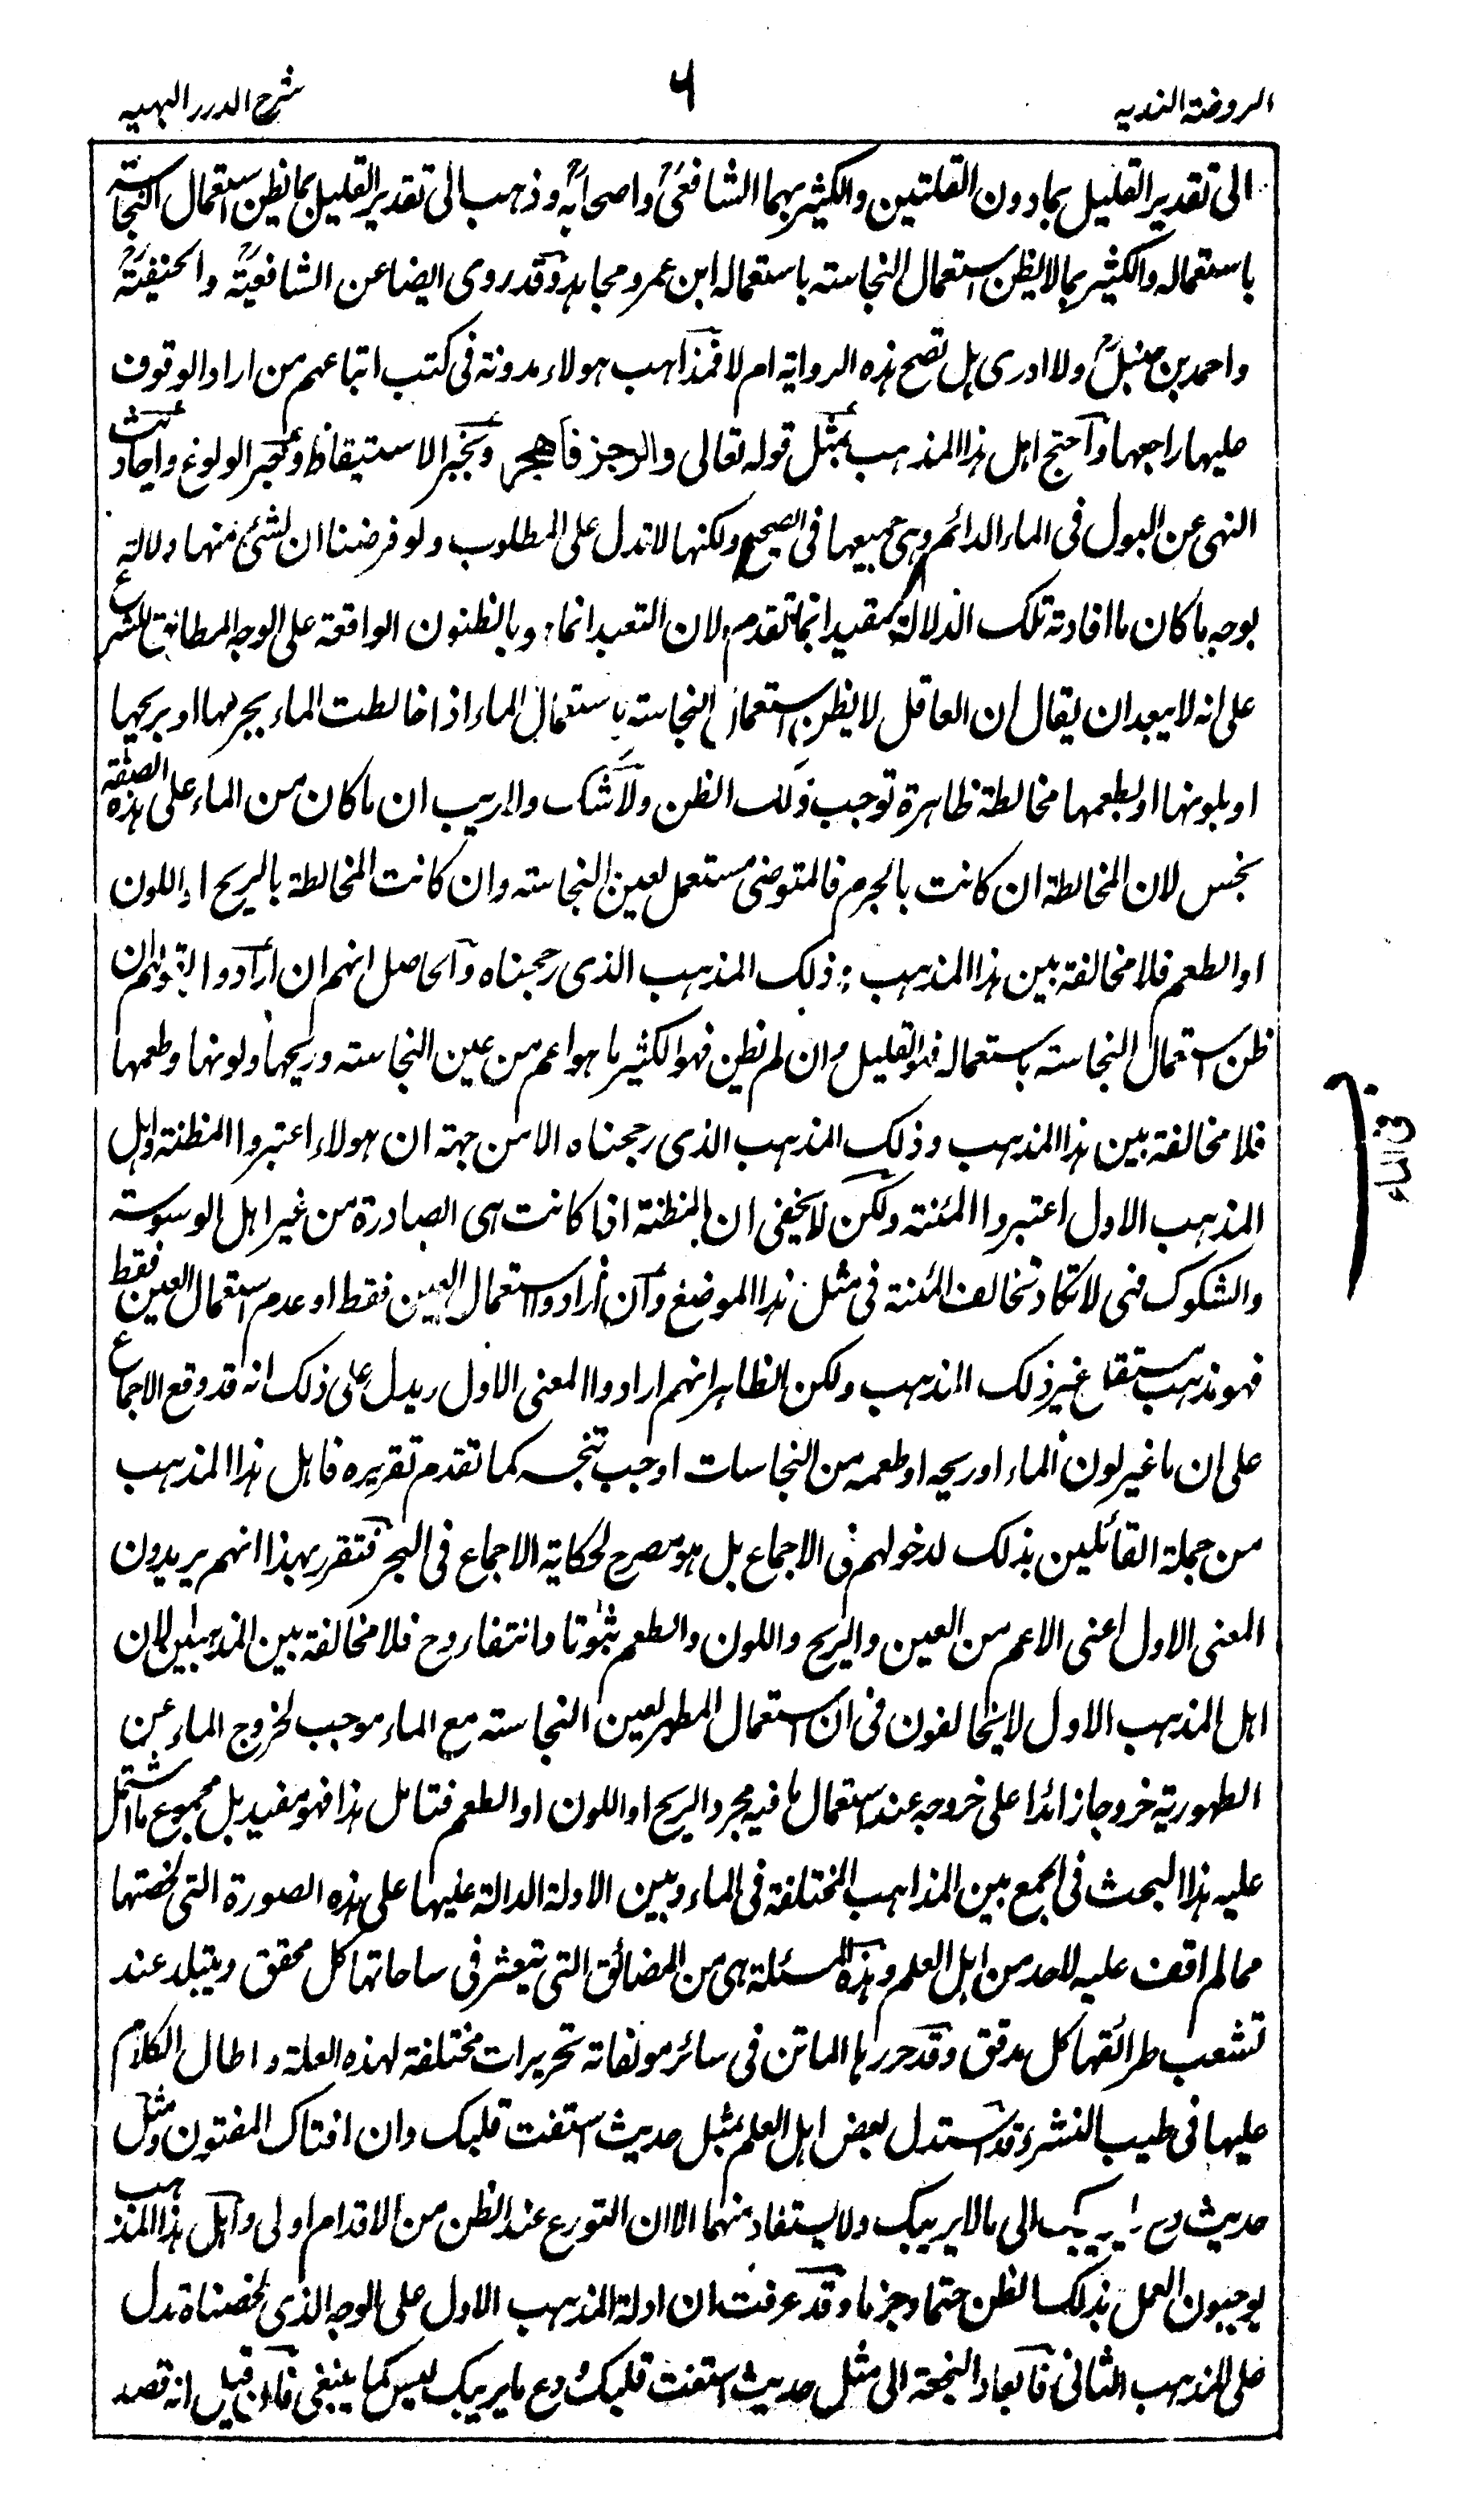 الروضة الندیه
۶
شرح الدرر البهیه
الی تقدیر القلیل بما دون القلتین والکثیر بهما الشافعیؒ واصحابهؒ وذهب الی تقدیر القلیل بما یظن استعمال النجاسته
باستعماله والکثیر بما لا یظن استعمال النجاسته باستعماله ابن عمر ومجاهد وقد روی ایضا عن الشافعیةؒ والحنفیةؒ
واحمد بن حنبلؒ ولا ادری هل تصح هذه الروایة ام لا فمذاهب هولاء مدونة فی کتب اتباعهم من اراد الوقوف
علیها راجعها واحتج اهل هذا المذهب بمثل قوله تعالی والرجز فاهجر وبخبر الاستیقاظ وخبر الولوغ واحادیث
النهی عن البول فی الماء الدائم وهی جمیعها فی الصحیح ولکنها لا تدل علی المطلوب ولو فرضنا ان لشئ منها دلالة
بوجه ما کان ما افادته تلک الدلالة مقیدا بما تقدم لان التعبد انما هو بالظنون الواقعة علی الوجه المطابق للشرع
علی انه لا یبعد ان یقال ان العاقل لا یظن استعمال النجاسته باستعمال الماء اذا خالطت الماء بجرمها او بریحها
او بلونها او بطعمها مخالطة ظاهرة توجب ذلک الظن ولا شک ولا ریب ان ما کان من الماء علی هذه الصفة
نجس لان المخالطة ان کانت بالجرم فالمتوضئ مستعمل لعین النجاسته وان کانت المخالطة بالریح او اللون
او الطعم فلا مخالفة بین هذا المذهب وذلک المذهب الذی رجحناه والحاصل انهم ان ارادوا بقولهم ان
ظن استعمال النجاسته باستعماله فهو القلیل وان لم یظن فهو الکثیر ما هو اعم من عین النجاسته وریحها ولونها وطعمها
فلا مخالفة بین هذا المذهب وذلک المذهب الذی رجحناه الا من جهة ان هولاء اعتبروا المظنة واهل
المذهب الاول اعتبروا المئنة ولکن لا یخفی ان المظنة اذا کانت هی الصادرة من غیر اهل الوسوسة
والشکوک فهی لا تکاد تخالف المئنة فی مثل هذا الموضع وان ارادوا استعمال العین فقط او عدم استعمال العین فقط
فهو مذهب مستقل غیر ذلک المذهب ولکن الظاهر انهم ارادوا المعنی الاول ویدل علی ذلک انه قد وقع الاجماع
علی ان ما غیر لون الماء او ریحه او طعمه من النجاسات اوجب تنجسه کما تقدم تقریره فاهل هذا المذهب
من جملة القائلین بذلک لدخولهم فی الاجماع بل هو مصرح لحکایة الاجماع فی البحر فتقرر بهذا انهم یریدون
المعنی الاول اعنی الاعم من العین والریح واللون والطعم ثبوتا وانتفاء وح فلا مخالفة بین المذهبین لان
اهل المذهب الاول لا یخالفون فی ان استعمال المطهر لعین النجاسته مع الماء موجب لخروج الماء عن
الطهوریة خروجا زائدا علی خروجه عند استعمال ما فیه مجرد الریح او اللون او الطعم فتامل هذا فهو مفید بل مجموع ما اشتمل
علیه هذا البحث فی الجمع بین المذاهب المختلفة فی الماء وبین الادلة الدالة علیها علی هذه الصورة التی لخصتها
مما لم اقف علیه لاحد من اهل العلم وهذه المسئلة هی من المضائق التی یتعثر فی ساحاتها کل محقق ویتبلد عند
تشعب طرائقها کل مدقق وقد حررها الماتن فی سائر مولفاته تحریرات مختلفة لهذه العلة واطال الکلام
علیها فی طیب النشر وقد استدل بعض اهل العلم بمثل حدیث استفت قلبک وان افتاک المفتون ومثل
حدیث دع ما یریبک الی مالا یریبک ولا یستفاد منهما الا ان التورع عند الظن من الاقدام اولی واهل هذا المذهب
یوجبون العمل بذلک الظن حتما وجزما وقد عرفت ان ادلة المذهب الاول علی الوجه الذی لخصناه تدل
علی المذهب الثانی فابعاد النجعة الی مثل حدیث استفت قلبک ودع ما یریبک لیس کما ینبغی فان قیل انه قصد